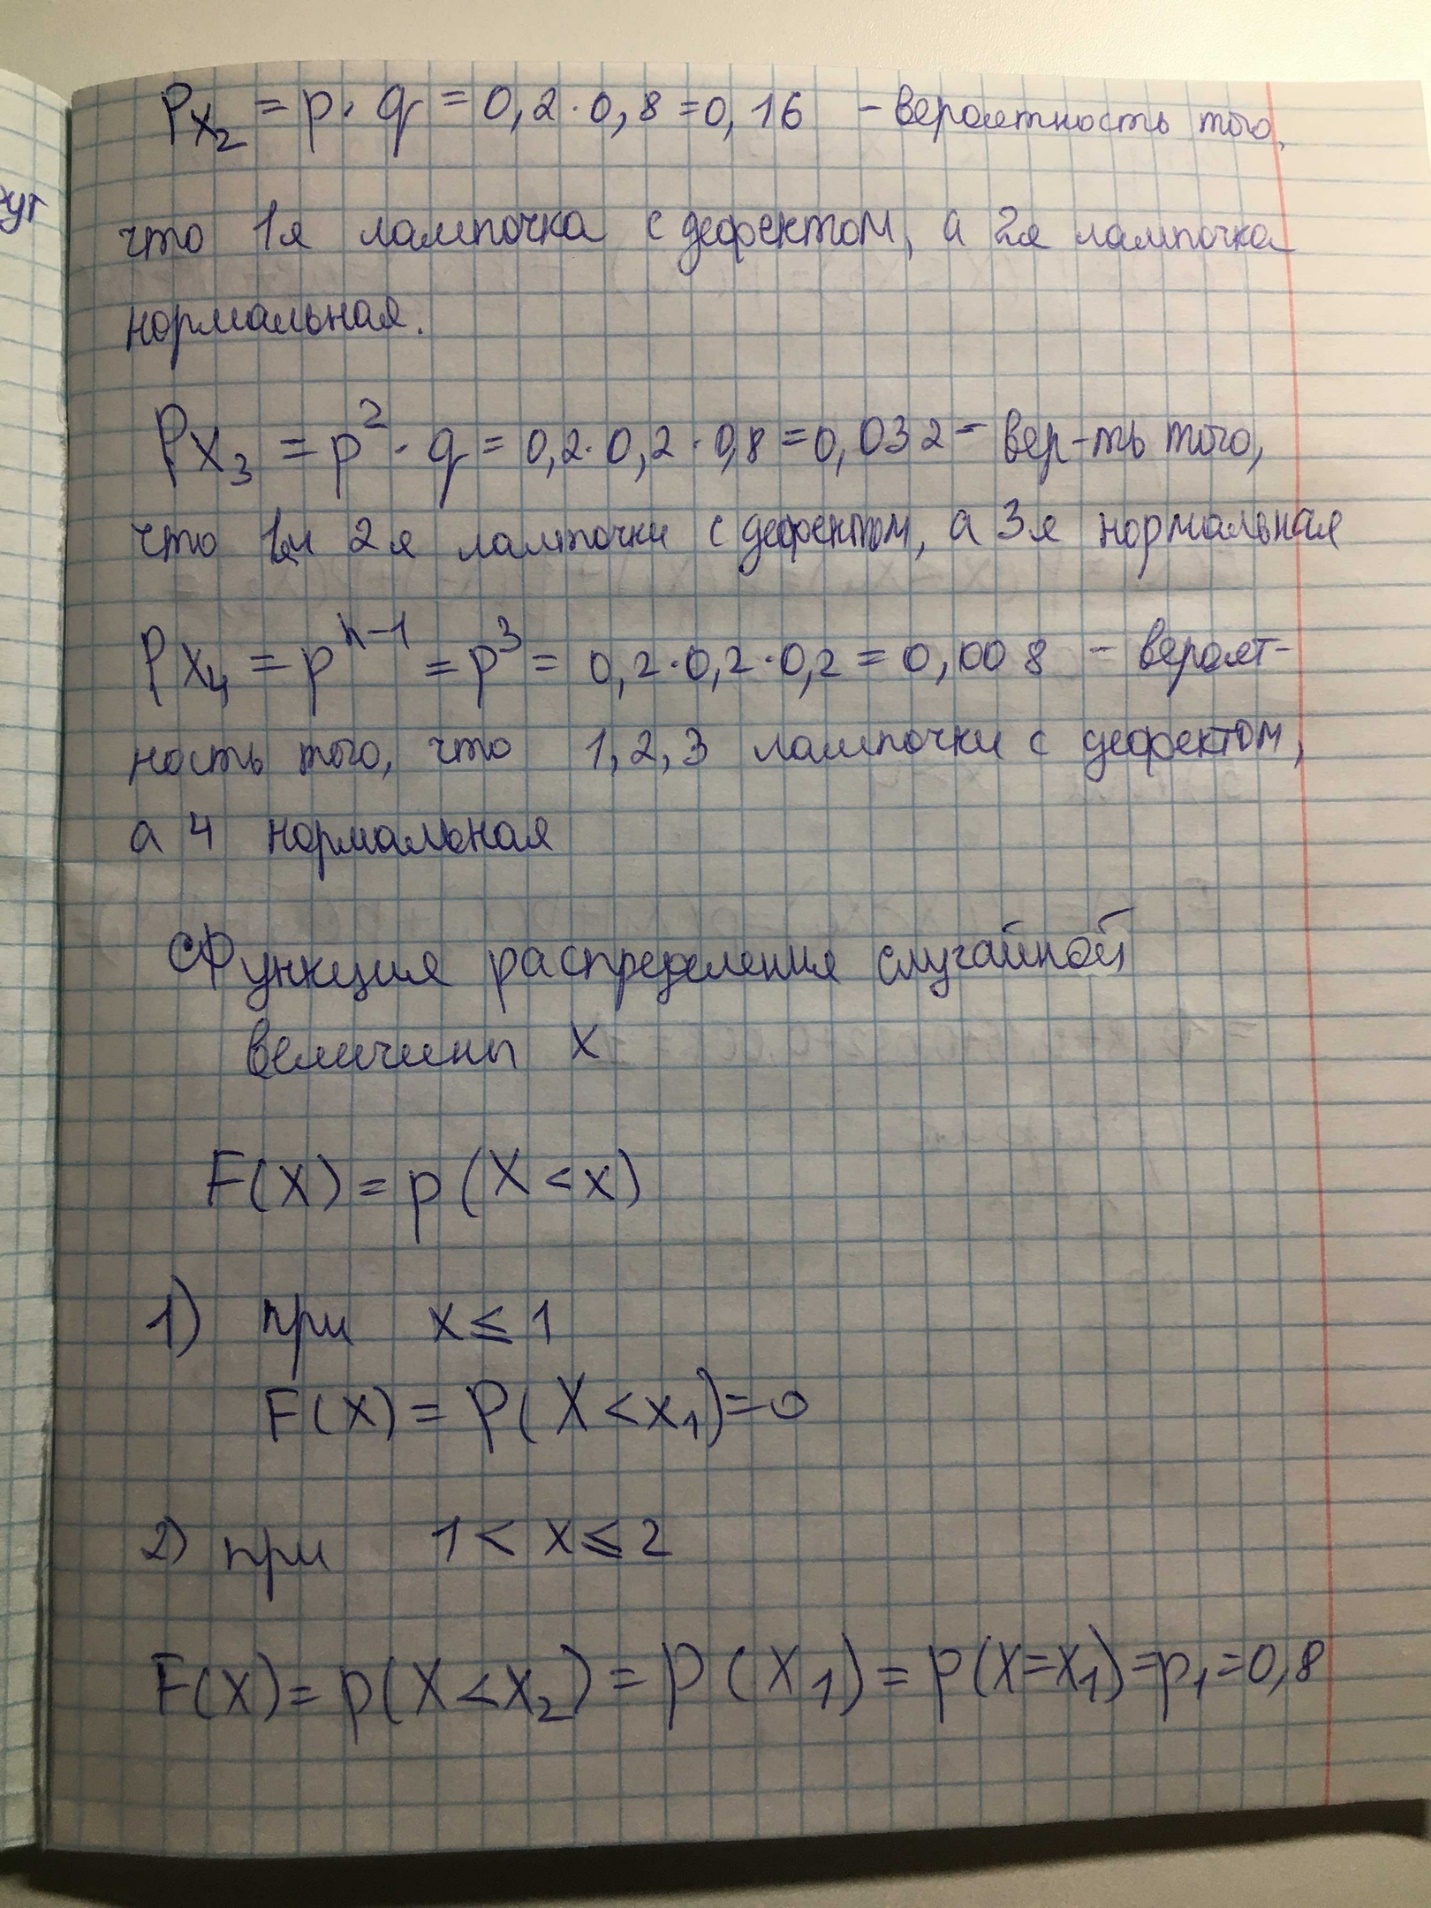 Px₂ = p · q = 0,2 · 0,8 = 0,16 – вероятность того,
что 1я лампочка с дефектом, а 2я лампочка
нормальная.
Px₃ = p² · q = 0,2 · 0,2 · 0,8 = 0,032 – вер-ть того,
что 1 и 2я лампочки с дефектом, а 3я нормальная
Px₄ = pⁿ⁻¹ = p³ = 0,2 · 0,2 · 0,2 = 0,008 – вероят-
ность того, что 1, 2, 3 лампочки с дефектом,
а 4 нормальная
Функция распределения случайной
величины x
F(X) = p (X < x)
1) при x ≤ 1
F(X) = P(X < x₁) = 0
2) при 1 < x ≤ 2
F(X) = p(X < x₂) = P(X₁) = p(X = x₁) = p₁ = 0,8